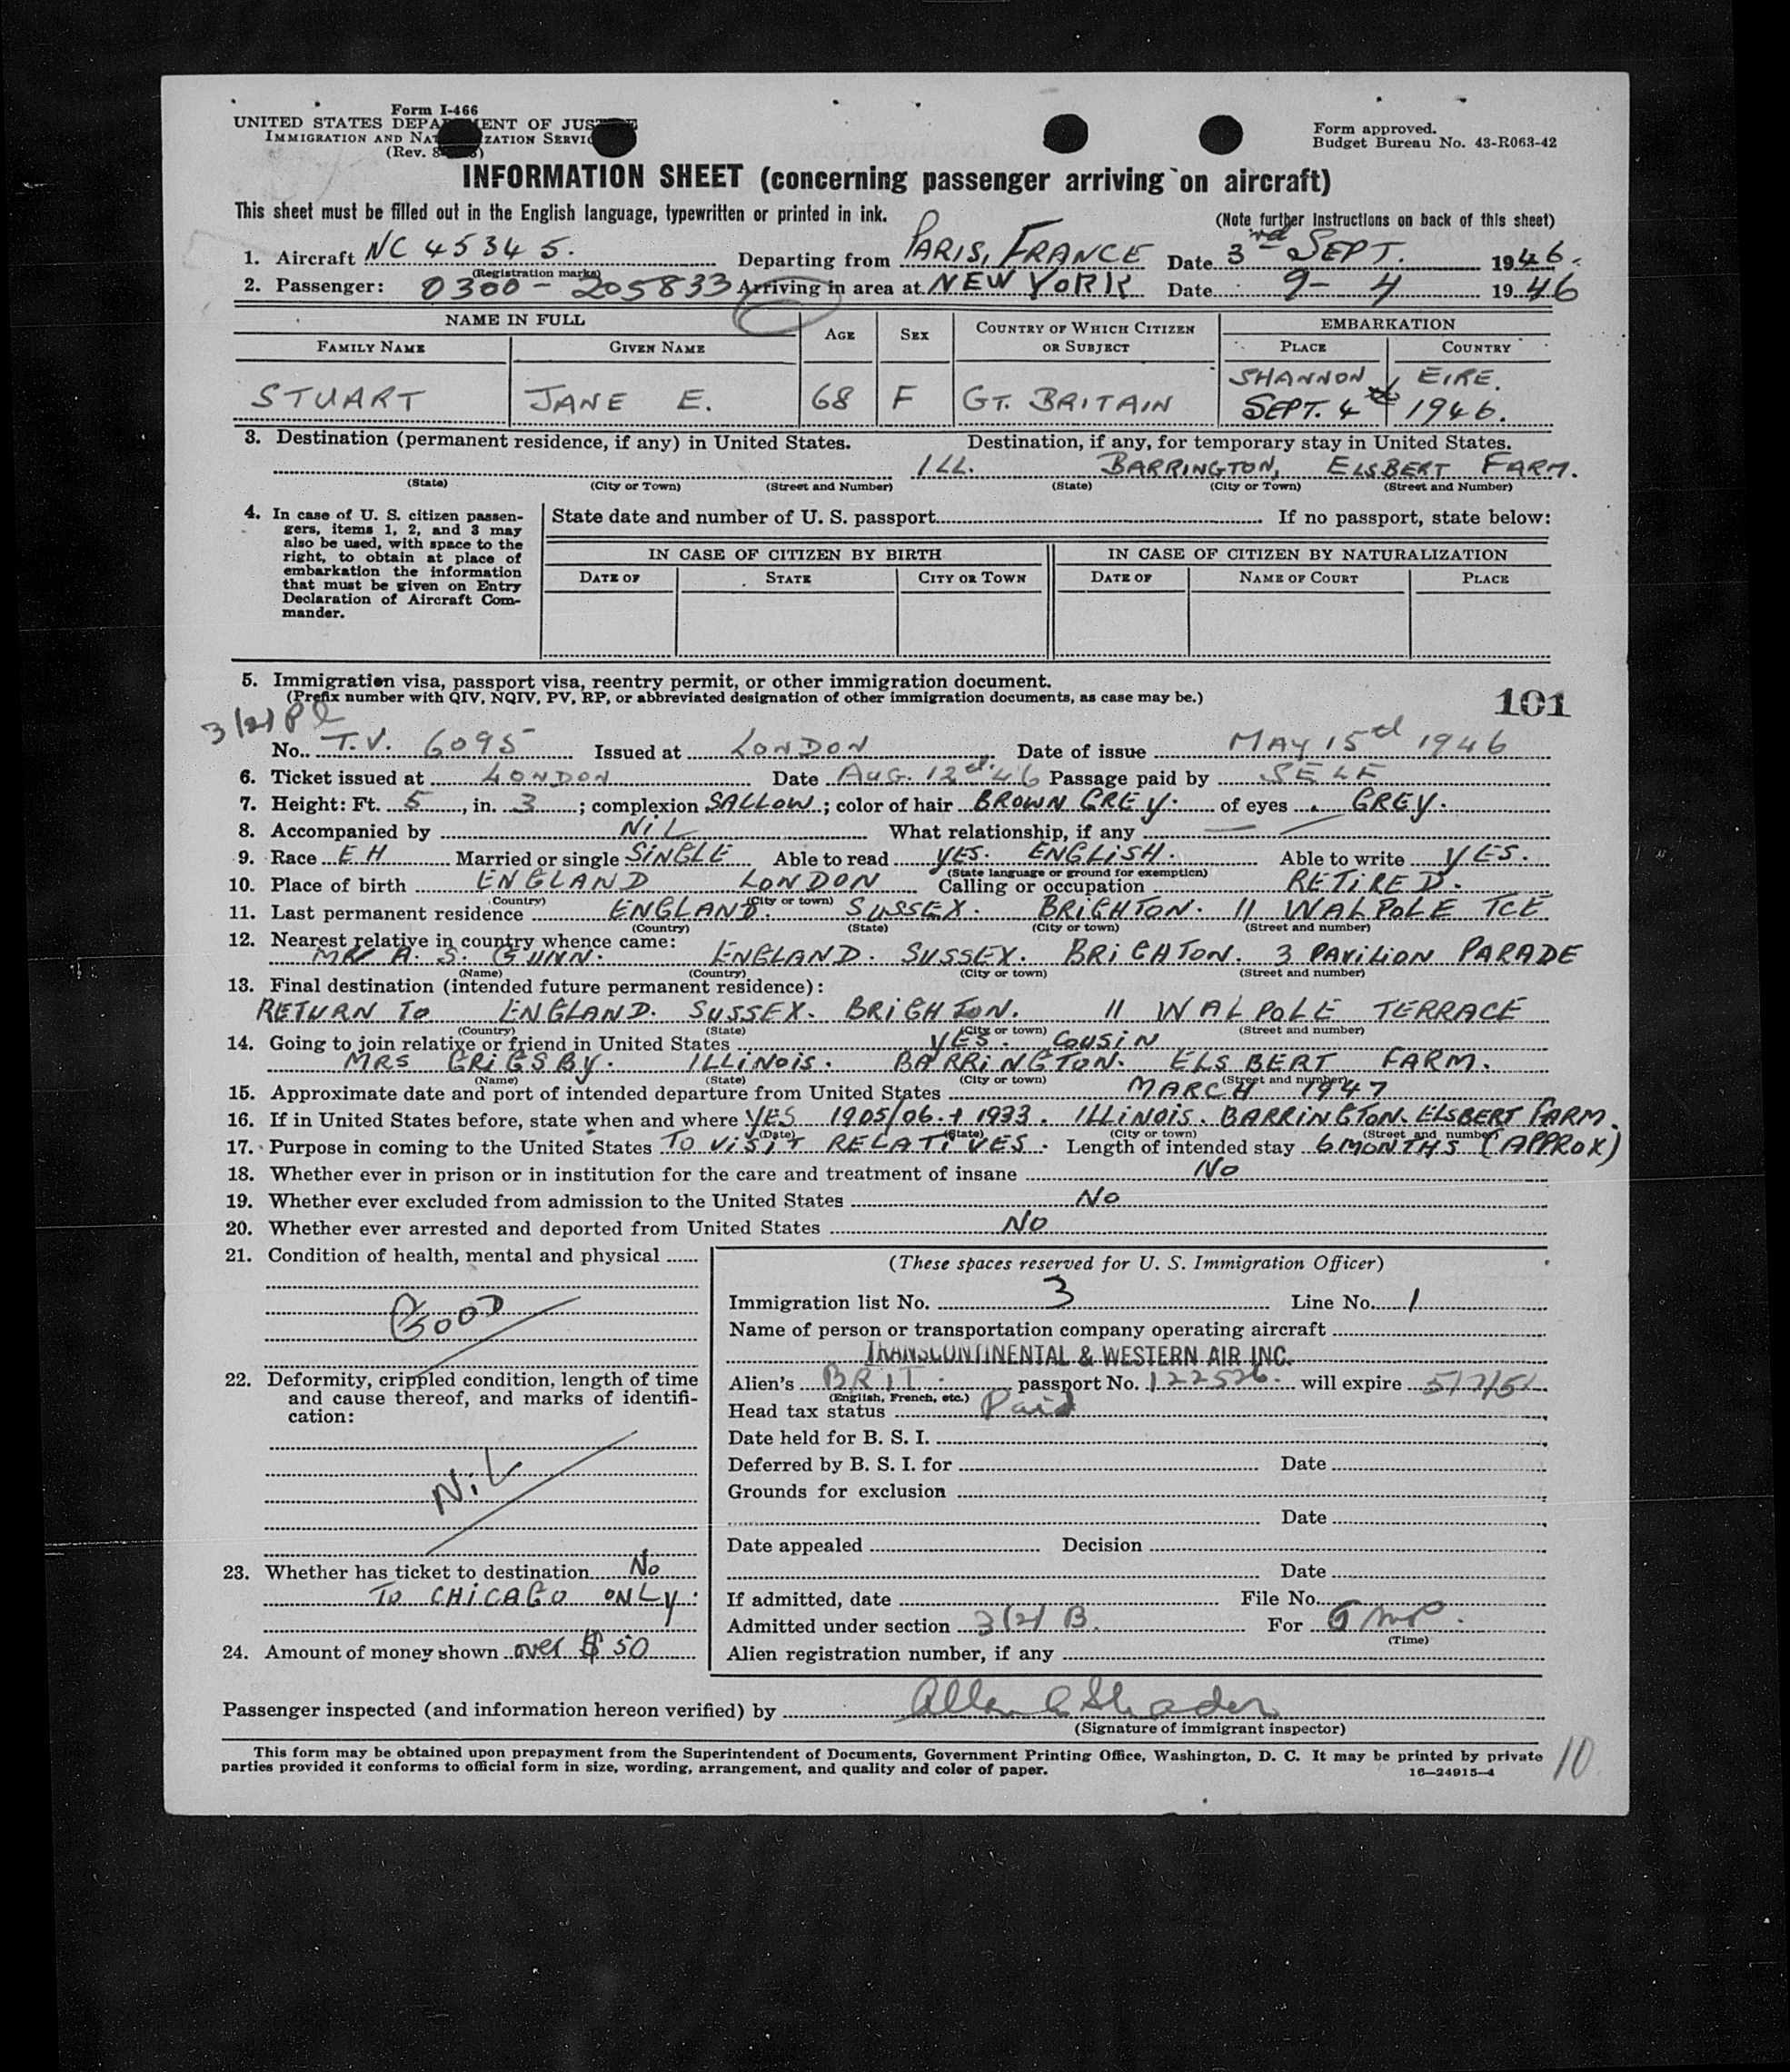 Form I-466
UNITED STATES DEPARTMENT OF JUSTICE
IMMIGRATION AND NATURALIZATION SERVICE
(Rev.
Form approved.
Budget Bureau No. 43-R063-42
INFORMATION SHEET (concerning passenger arriving on aircraft)
This sheet must be filled out in the English language, typewritten or printed in ink.
(Note further instructions on back of this sheet)
1. Aircraft NC 45345. Departing from PARIS, FRANCE Date 3rd SEPT. 1946.
(Registration marks)
2. Passenger: 0300-205833 Arriving in area at NEW YORK Date 9-4 1946
NAME IN FULL AGE SEX COUNTRY OF WHICH CITIZEN OR SUBJECT EMBARKATION
FAMILY NAME GIVEN NAME PLACE COUNTRY
STUART JANE E. 68 F GT. BRITAIN SHANNON EIRE.
SEPT. 4 1946.
3. Destination (permanent residence, if any) in United States. Destination, if any, for temporary stay in United States.
ILL. BARRINGTON, ELSBERT FARM.
(State) (City or Town) (Street and Number) (State) (City or Town) (Street and Number)
4. In case of U. S. citizen passen-
gers, items 1, 2, and 3 may
also be used, with space to the
right, to obtain at place of
embarkation the information
that must be given on Entry
Declaration of Aircraft Com-
mander.
State date and number of U. S. passport If no passport, state below:
IN CASE OF CITIZEN BY BIRTH IN CASE OF CITIZEN BY NATURALIZATION
DATE OF STATE CITY OR TOWN DATE OF NAME OF COURT PLACE
5. Immigration visa, passport visa, reentry permit, or other immigration document.
(Prefix number with QIV, NQIV, PV, RP, or abbreviated designation of other immigration documents, as case may be.)
101
3(2)
No. T.V. 6095 Issued at LONDON Date of issue MAY 15d 1946
6. Ticket issued at LONDON Date AUG. 12d. 46 Passage paid by SELF
7. Height: Ft. 5, in. 3; complexion SALLOW; color of hair BROWN GREY. of eyes. GREY.
8. Accompanied by NIL What relationship, if any —
9. Race EH Married or single SINGLE Able to read YES. ENGLISH. Able to write YES.
(State language or ground for exemption)
10. Place of birth ENGLAND LONDON Calling or occupation RETIRED.
(Country) (City or town)
11. Last permanent residence ENGLAND. SUSSEX. BRIGHTON. 11 WALPOLE TCE
(Country) (State) (City or town) (Street and number)
12. Nearest relative in country whence came:
A. S. GUNN. ENGLAND. SUSSEX. BRIGHTON. 3 PAVILION PARADE
(Name) (Country) (City or town) (Street and number)
13. Final destination (intended future permanent residence):
RETURN TO ENGLAND. SUSSEX. BRIGHTON. 11 WALPOLE TERRACE
(Country) (State) (City or town) (Street and number)
14. Going to join relative or friend in United States YES. COUSIN
MRS GRIGSBY. ILLINOIS. BARRINGTON. ELSBERT FARM.
(Name) (State) (City or town) (Street and number)
15. Approximate date and port of intended departure from United States MARCH 1947
16. If in United States before, state when and where YES 1905/06. + 1933. ILLINOIS. BARRINGTON. ELSBERT FARM.
(Date) (State) (City or town) (Street and number)
17. Purpose in coming to the United States TO VISIT RELATIVES. Length of intended stay 6 MONTHS (APPROX)
18. Whether ever in prison or in institution for the care and treatment of insane NO
19. Whether ever excluded from admission to the United States NO
20. Whether ever arrested and deported from United States NO
21. Condition of health, mental and physical
GOOD
22. Deformity, crippled condition, length of time
and cause thereof, and marks of identifi-
cation:
NIL
23. Whether has ticket to destination NO
TO CHICAGO ONLY.
24. Amount of money shown over $50
(These spaces reserved for U. S. Immigration Officer)
Immigration list No. 3 Line No. 1
Name of person or transportation company operating aircraft
TRANSCONTINENTAL & WESTERN AIR INC.
Alien's BRIT. passport No. 122526. will expire 5/7/51
(English, French, etc.)
Head tax status Paid
Date held for B. S. I.
Deferred by B. S. I. for Date
Grounds for exclusion
Date
Date appealed Decision
Date
If admitted, date File No.
Admitted under section 3(2) B. For
(Time)
Alien registration number, if any
Passenger inspected (and information hereon verified) by
(Signature of immigrant inspector)
This form may be obtained upon prepayment from the Superintendent of Documents, Government Printing Office, Washington, D. C. It may be printed by private
parties provided it conforms to official form in size, wording, arrangement, and quality and color of paper. 16—24915-4
10